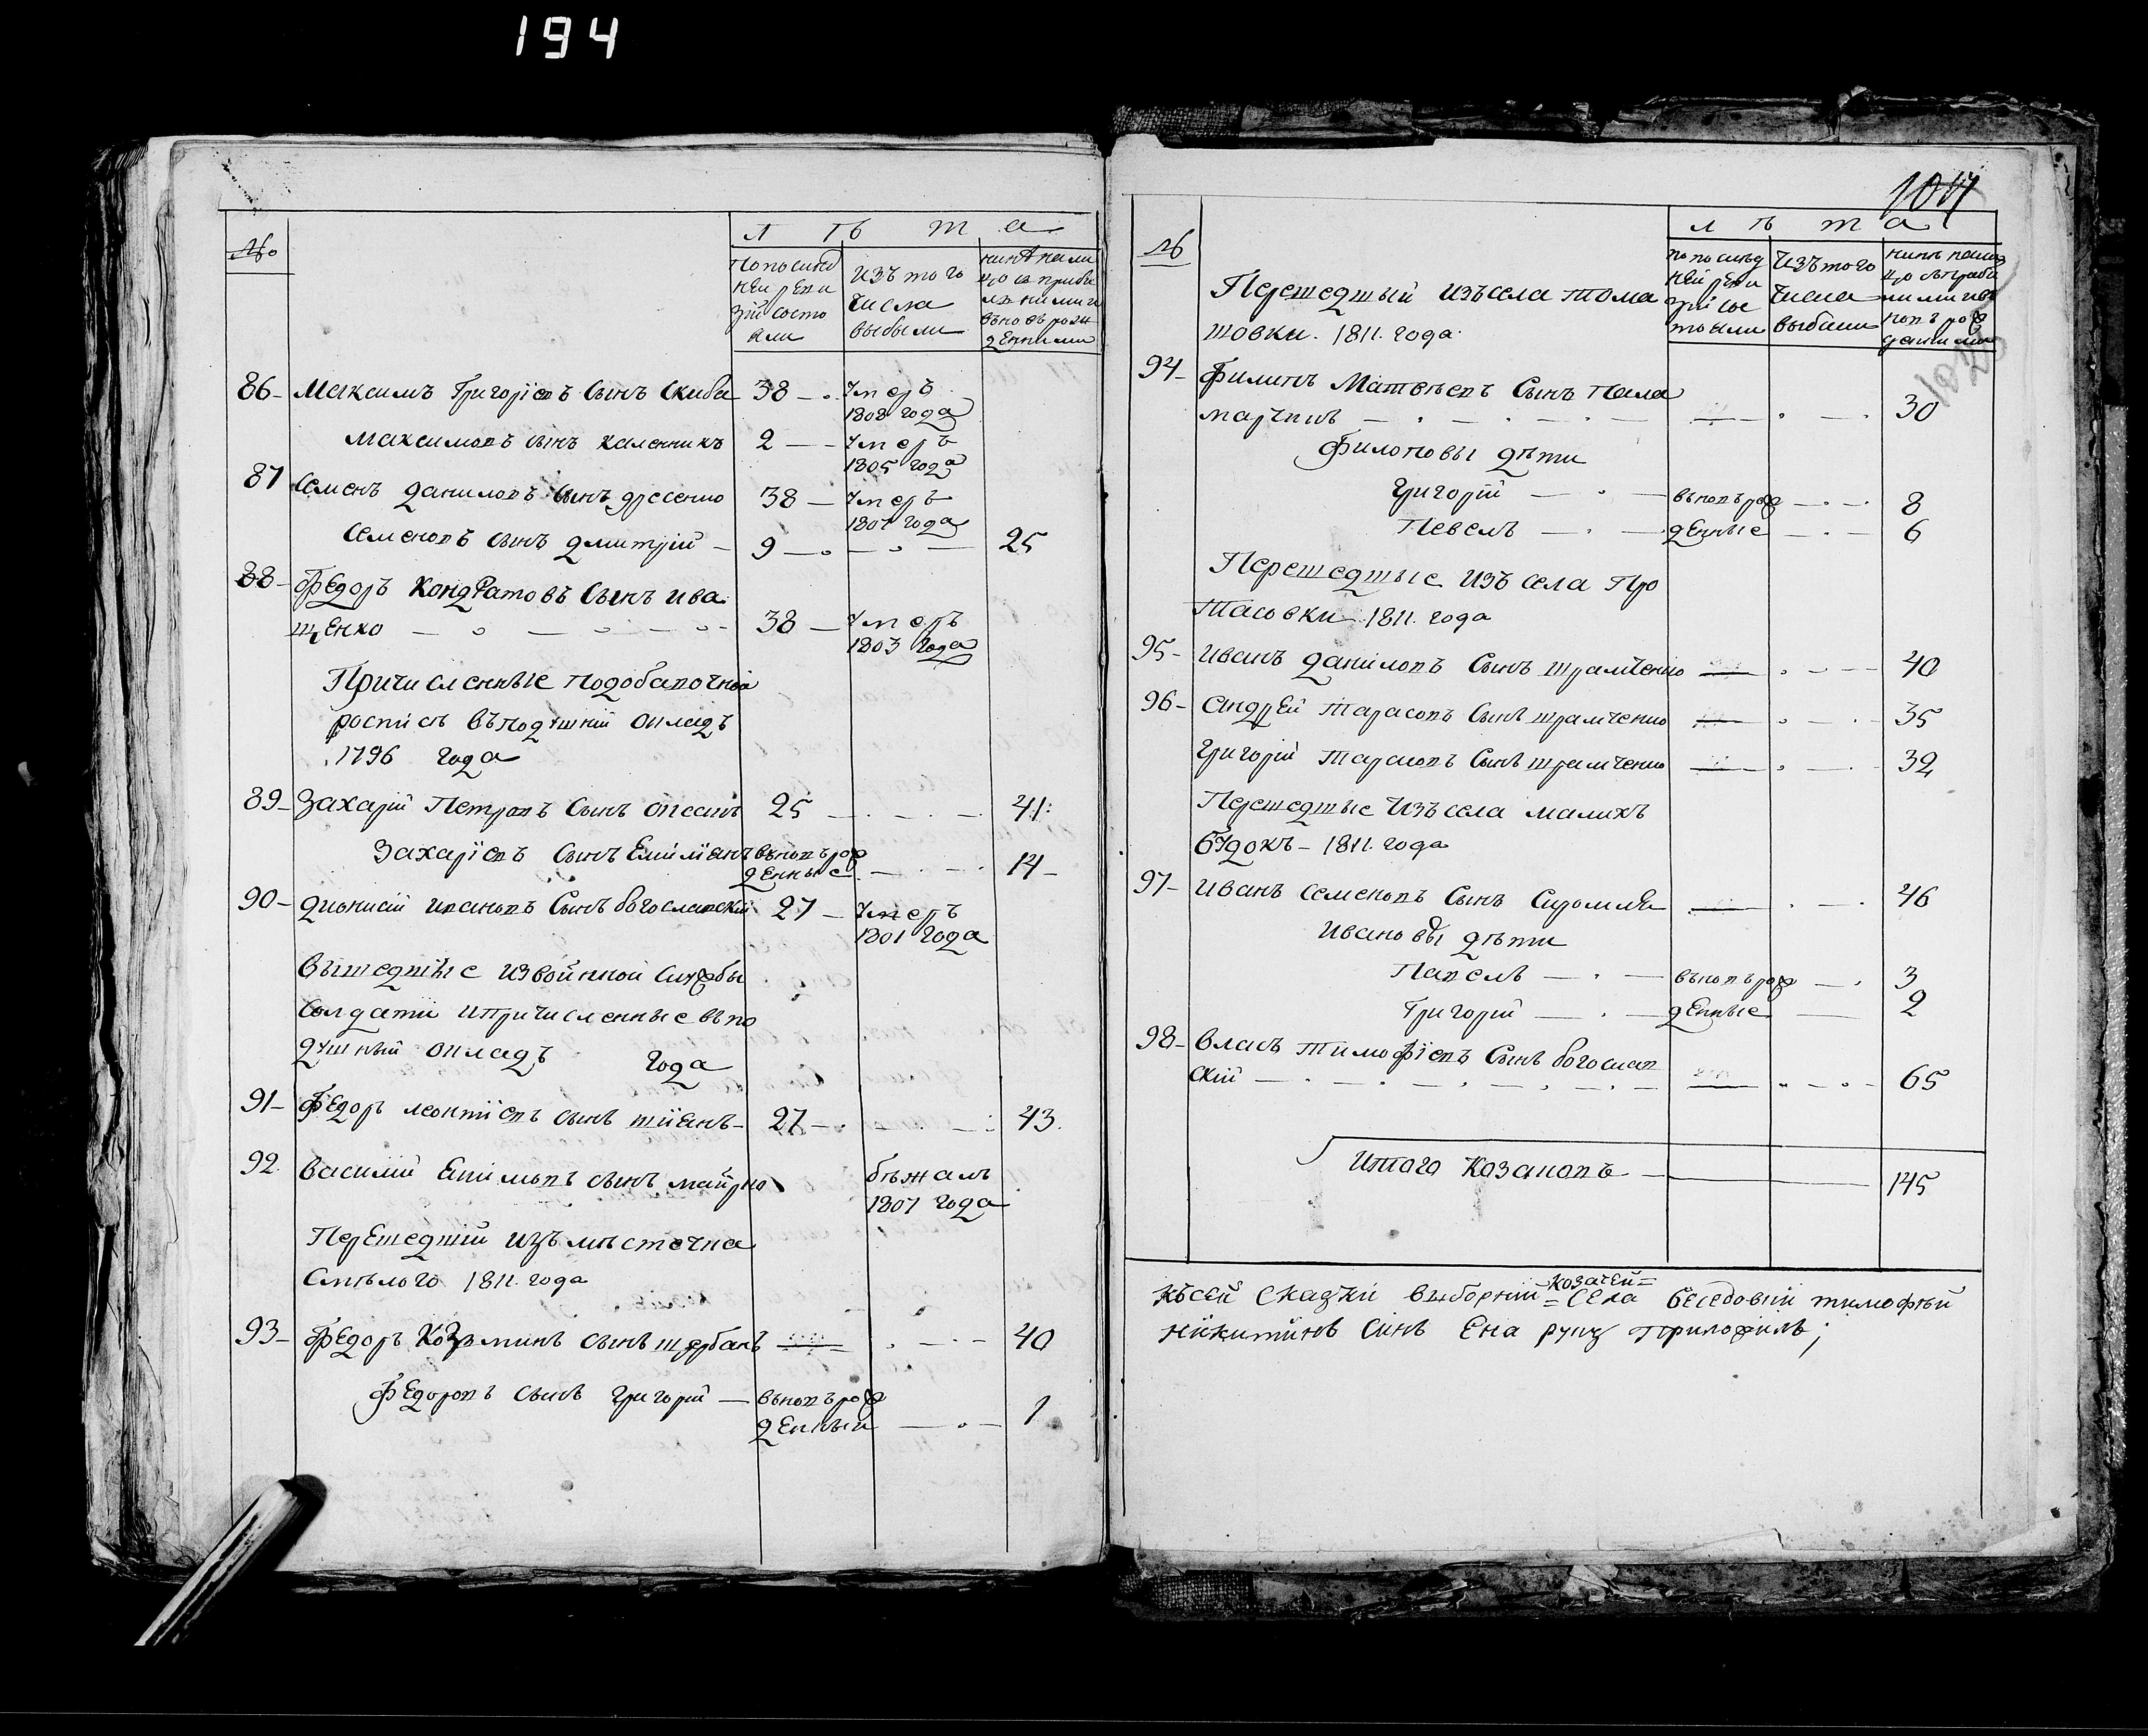 194
№
Л ѣ т а
По послед
ней реви
зіи состо
яли
изъ того
числа
выбыли
86 Максимъ Григоріевъ Сынъ Скиба 38 Умеръ
1808 года
Максимовъ сынъ Каленникъ 2 Умеръ
1805 года
87 Семенъ Даниловъ Сынъ 38 Умеръ
1807 года
Семеновъ сынъ Дмитрій 9 25
88 Федоръ Кондратовъ Сынъ ива
щенко 38 Умеръ
1803 года
Причисленные подобавочной
росписѣ въподушній окладъ
1796 года
89 Захарій Петровъ Сынъ 25 41
Захаріевъ Сынъ Емиліянъ вновърож
денные 14
90 Діонисій Ивановъ Сынъ богославскій 27 Умеръ
1801 года
Вышедшые извоинной Службы
Солдати ипричисленные въпо
душный окладъ года
91 Федоръ Леонтіевъ сынъ 27 43
92 Василій сынъ бѣжалъ
1807 года
Перешедшій изъ мѣстечка
Смѣлого 1811 года
93 Федоръ Козминъ сынъ щербанъ 40
Федоровъ сынъ Григорій вновърож
денный 1
№
Л ѣ т а
по послѣд
ней реви
зіи сос
тояли
Изъ того
числа
выбыли
Перешедшый изъсела Тома
шовки 1811 года
94 Филипъ Матвѣевъ Сынъ Пала
марчикъ 30
Филиповы дѣти
Григорій вновърож 8
Павелъ денные 6
Перешедшые изъ села Про
тасовки 1811 года
95 Иванъ Даниловъ Сынъ шрамченко 40
96 Андрей Тарасовъ Сынъ шрамченко 35
Григорій Тарасовъ Сынъ шрамченко 32
Перешедшые Изъ села малихъ
будокъ 1811 года
97 Иванъ Семеновъ Сынъ Сиромля 46
Ивановы дѣти
Павелъ вновърож 3
Григорій денные 2
98 Власъ Тимофіевъ Сынъ богослав
скій 65
Итого Козаковъ 145
Козачей
Къ сей Сказки выборній Села беседовій тимофѣй
Никитинъ Синъ приложилъ